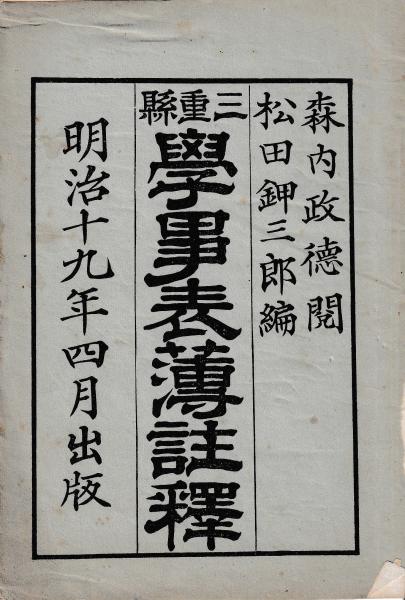 森内政德閲
松田鉀三郎編
三重縣
學事表薄註釋
明治十九年四月出版